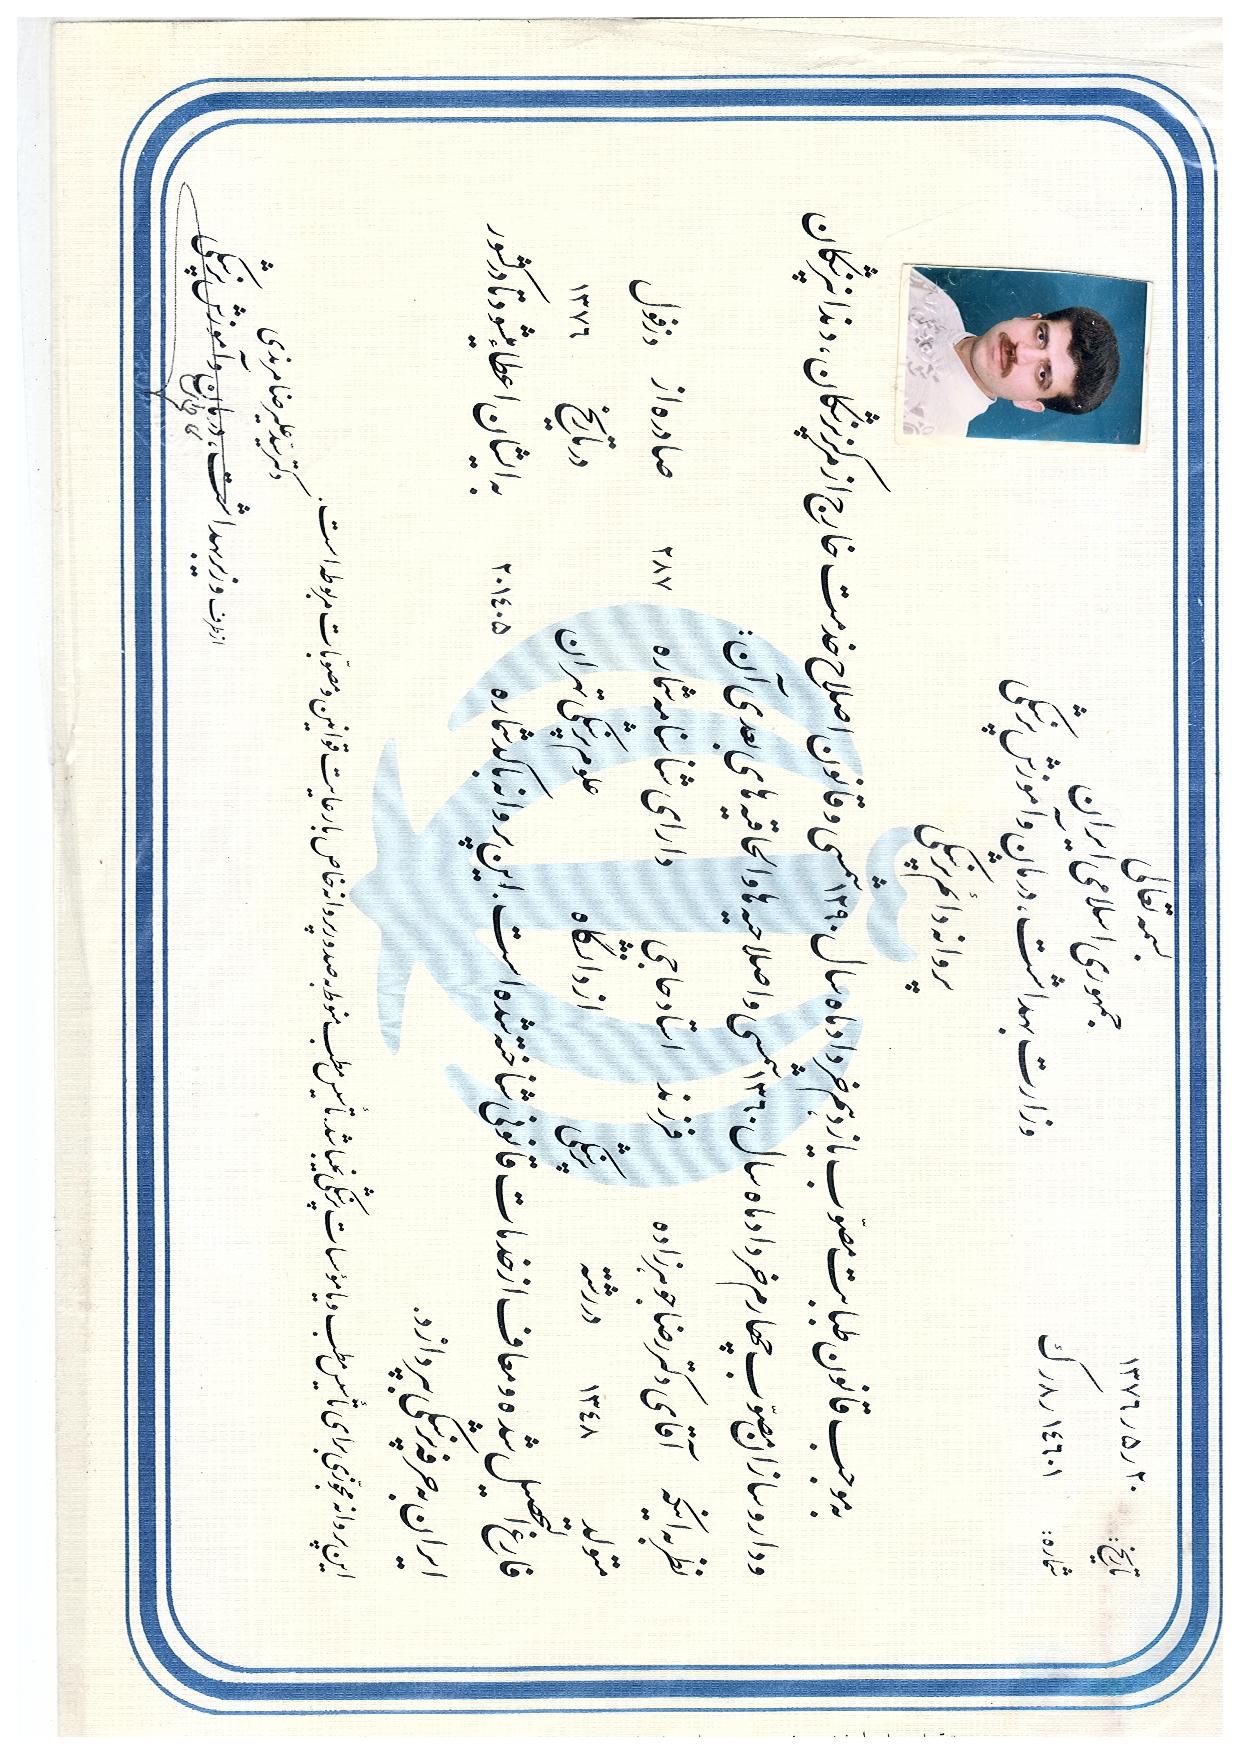 بسمه تعالی
جمهوری اسلامی ایران
وزارت بهداشت، درمان و آموزش پزشکی
پروانه دائم پزشکی
تاریخ: ۱۳۷۶/۵/۲۰
شماره: ۱۴۶۰۱/۸/ک
به موجب قانون طبابت مصوّب یازدهم خرداد ماه سال ۱۲۹۰ شمسی و قانون اصلاح خدمت خارج از مرکز پزشکان، دندانپزشکان
و داروسازان مصوّب چهارم خرداد ماه سال ۱۳۶۰ شمسی و اصلاحیه ها و الحاقیه های بعدی آن:
نظر به اینکه آقای دکتر رضا جوهرزاده فرزند استاد حاجی دارای شناسنامه شماره ۲۸۷ صادره از دزفول
متولد ۱۳۴۸ در رشته پزشکی از دانشگاه علوم پزشکی تهران در تاریخ ۱۳۷۶
فارغ التحصیل شده و معاف از خدمات قانونی شناخته شده است. این پروانه با کد شماره ۲۰۱۴۰۵ به ایشان اعطاء میشود تا در کشور
ایران به حرفه پزشکی بپردازد.
این پروانه مجوّزی برای تأسیس مطب و یا مؤسسات پزشکی نمیباشد. تأسیس مطب منوط به صدور پروانه خاص با رعایت قوانین و مصوّبات مربوطه است.
دکتر سیّد علیرضا مرندی
از طرف وزیر بهداشت، درمان و آموزش پزشکی